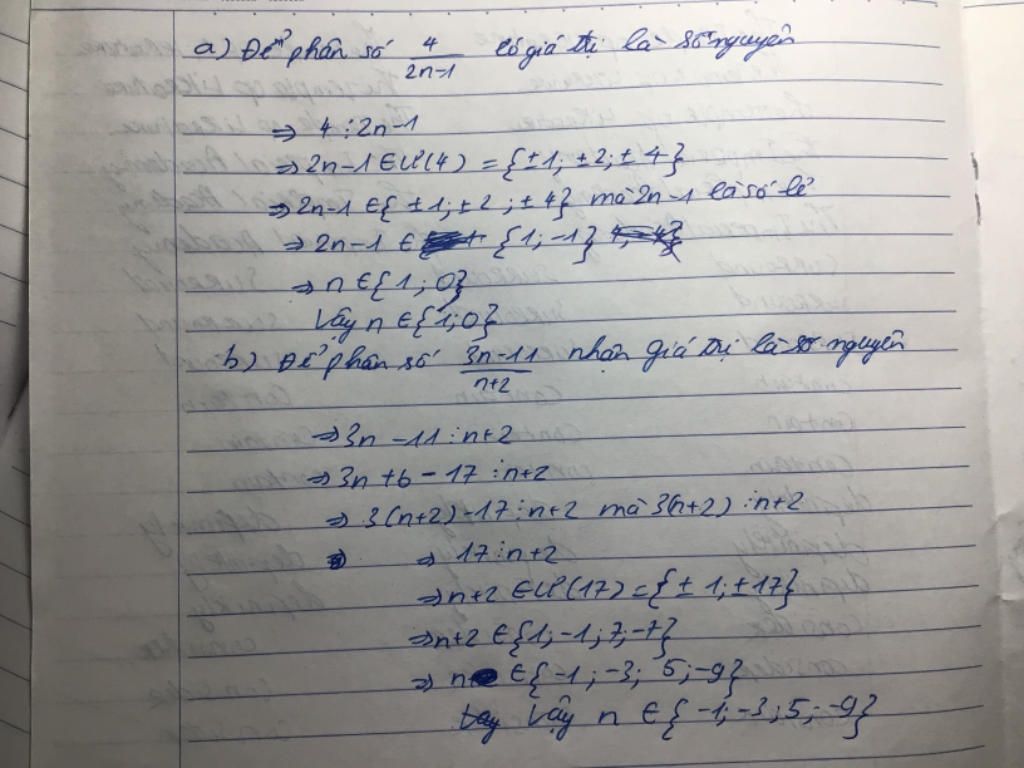 a) Để phân số 4/2n-1 có giá trị là số nguyên
⇒ 4 ⋮ 2n-1
⇒ 2n-1 ∈ Ư(4) = {±1; ±2; ±4}
⇒ 2n-1 ∈ {±1; ±2; ±4} mà 2n-1 là số lẻ
⇒ 2n-1 ∈ {1; -1}
⇒ n ∈ {1; 0}
Vậy n ∈ {1; 0}
b) Để phân số 3n-11/n+2 nhận giá trị là số nguyên
⇒ 3n-11 ⋮ n+2
⇒ 3n+6-17 ⋮ n+2
⇒ 3(n+2)-17 ⋮ n+2 mà 3(n+2) ⋮ n+2
⇒ 17 ⋮ n+2
⇒ n+2 ∈ Ư(17) = {±1; ±17}
⇒ n+2 ∈ {1; -1; 7; -7}
⇒ n ∈ {-1; -3; 5; -9}
Vậy n ∈ {-1; -3; 5; -9}